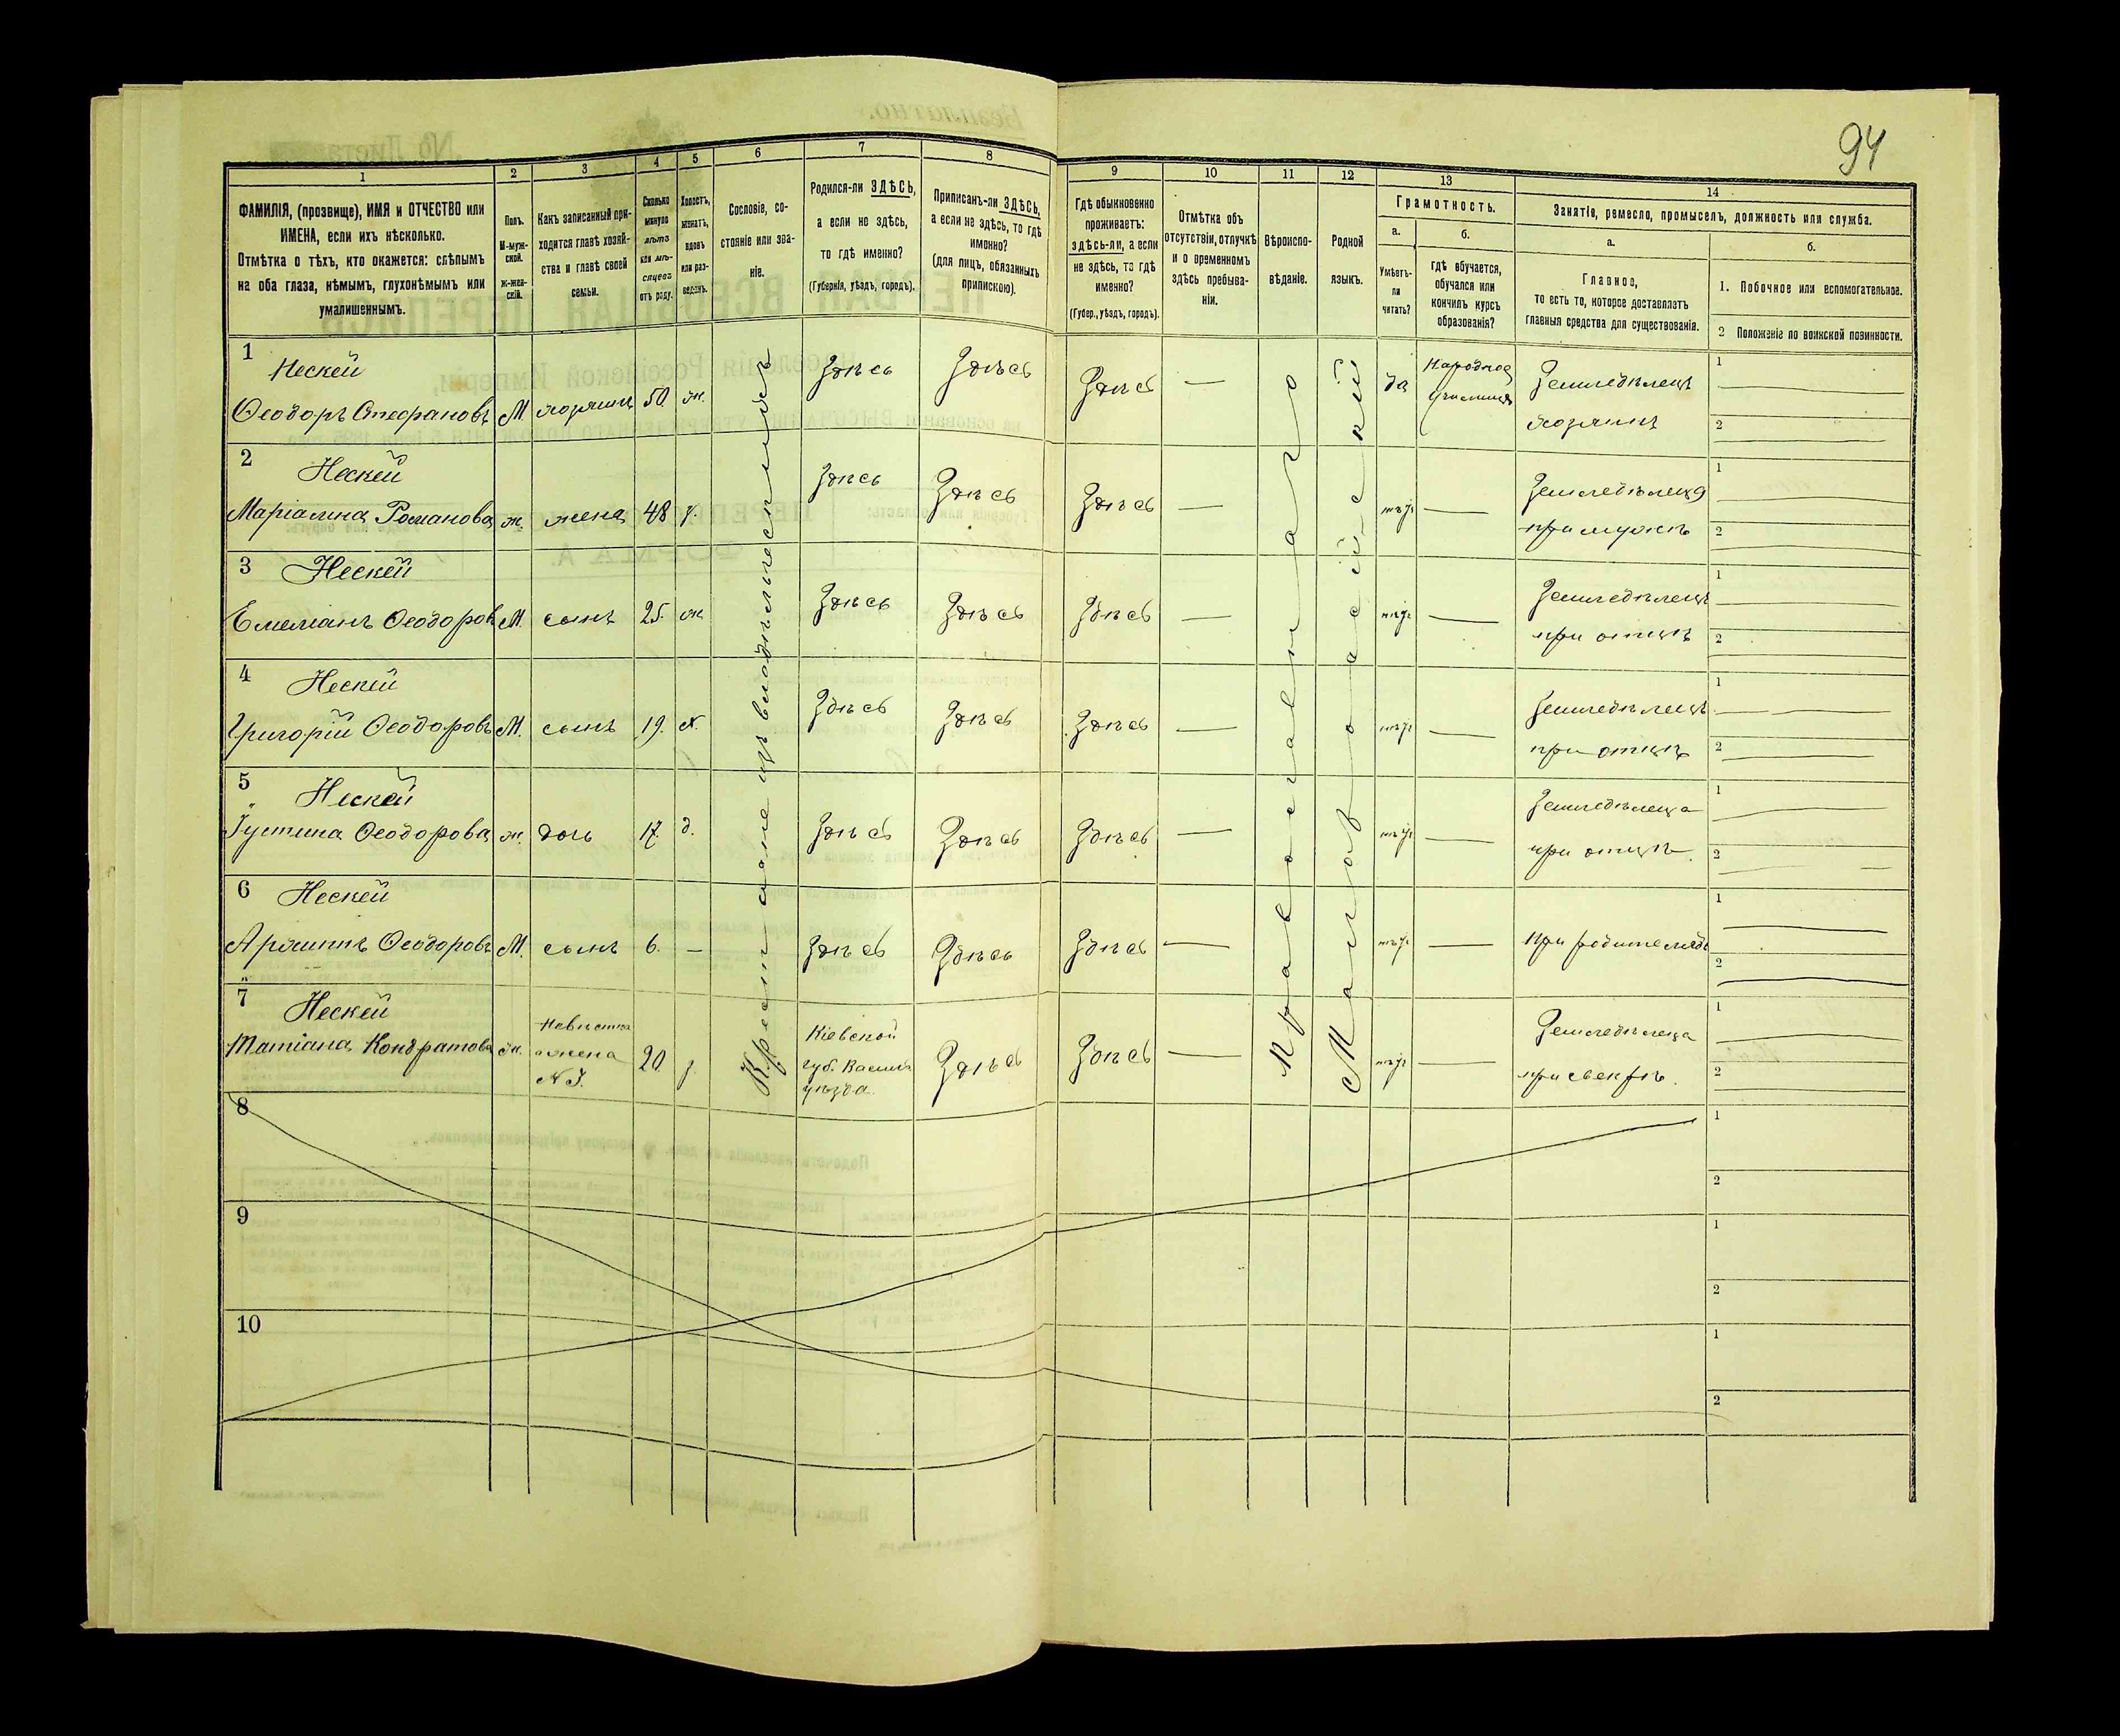 94
1 2 3 4 5 6 7 8 9 10 11 12 13 14
ФАМИЛІЯ, (прозвище), ИМЯ и ОТЧЕСТВО или
ИМЕНА, если ихъ нѣсколько.
Отмѣтка о тѣхъ, кто окажется: слѣпымъ
на оба глаза, нѣмымъ, глухонѣмымъ или
умалишеннымъ.
Полъ.
М-муж-
ской.
ж-жен-
скій.
Какъ записанный при-
ходится главѣ хозяй-
ства и главѣ своей
семьи.
Сколько
минуло
лѣтъ
или мѣ-
сяцевъ
отъ роду.
Холостъ,
женатъ,
вдовъ
или раз-
веденъ.
Сословіе, со-
стояніе или зва-
ніе.
Родился-ли ЗДѢСЬ,
а если не здѣсь,
то гдѣ именно?
(Губернія, уѣздъ, городъ).
Приписанъ-ли ЗДѢСЬ,
а если не здѣсь, то гдѣ
именно?
(для лицъ, обязанныхъ
припискою).
Гдѣ обыкновенно
проживаетъ:
здѣсь-ли, а если
не здѣсь, то гдѣ
именно?
(Губер., уѣздъ, городъ).
Отмѣтка объ
отсутствіи, отлучкѣ
и о временномъ
здѣсь пребыва-
ніи.
Вѣроиспо-
вѣданіе.
Родной
языкъ.
Грамотность.
а.
Умѣетъ-
ли
читать?
б.
гдѣ обучается,
обучался или
кончилъ курсъ
образованія?
Занятіе, ремесло, промыселъ, должность или служба.
а.
Главное,
то есть то, которое доставляетъ
главныя средства для существованія.
б.
1. Побочное или вспомогательное.
2 Положеніе по воинской повинности.
Крестьяне изъ владѣльческихъ
Православнаго
Малороссійскій
1 Нескей Здѣсь Здѣсь Здѣсь — да Народное Земледѣлецъ 1
Ѳеодоръ Стефановъ М хозяинъ 50 ж. училище хозяинъ 2
2 Нескей Здѣсь Здѣсь Здѣсь — нѣтъ — Земледѣлеца 1
Маріамна Романова ж. жена 48 з. при мужѣ 2
3 Нескей Здѣсь Здѣсь Здѣсь — нѣтъ — Земледѣлецъ 1
Емеліанъ Ѳеодоров М. сынъ 25. ж при отцѣ 2
4 Нескей Здѣсь Здѣсь Здѣсь — нѣтъ — Земледѣлецъ 1
Григорій Ѳеодоровъ М. сынъ 19. х. при отцѣ 2
5 Нескей Здѣсь Здѣсь Здѣсь — нѣтъ — Земледѣлеца 1
Іустина Ѳеодорова ж. дочь 17. д. при отцѣ. 2
6 Нескей 1
Ѳеодоровъ М. сынъ 6. — Здѣсь Здѣсь Здѣсь — нѣтъ — при родителяхъ 2
7 Нескей Невѣстка Кіевской Земледѣлеца 1
Татіана Кондратова ж. жена 20. з. губ. Васильк Здѣсь Здѣсь — нѣтъ — при свекрѣ. 2
№ 3. уѣзда.
8 1
2
9 1
2
10 1
2